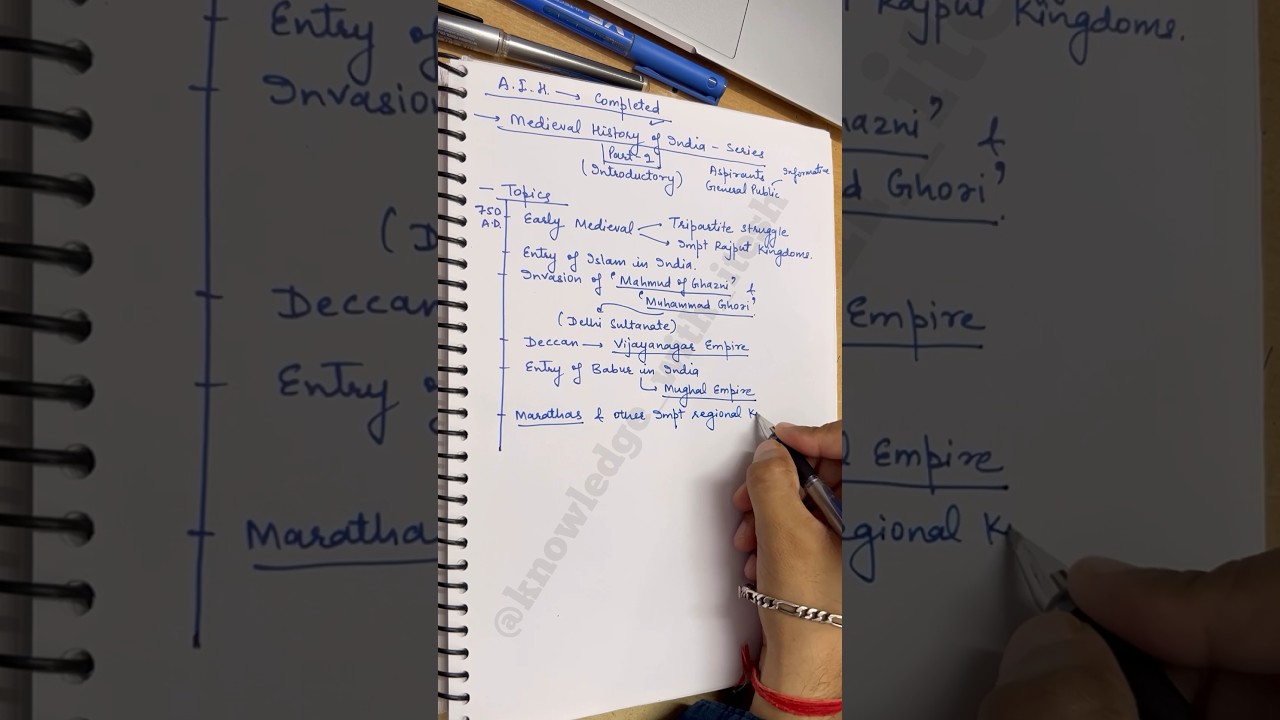 A.I.H. → Completed
→ Medieval History of India - Series
Part-1
(Introductory)
Aspirants
General Public
Informative
- Topics
750
A.D.
Early Medieval
Tripartite Struggle
Impt Rajput Kingdoms.
Entry of Islam in India.
Invasion of "Mahmud of Ghazni" &
"Muhammad Ghori"
(Delhi Sultanate)
Deccan → Vijayanagar Empire
Entry of Babur in India
Mughal Empire
Marathas & other Impt regional K